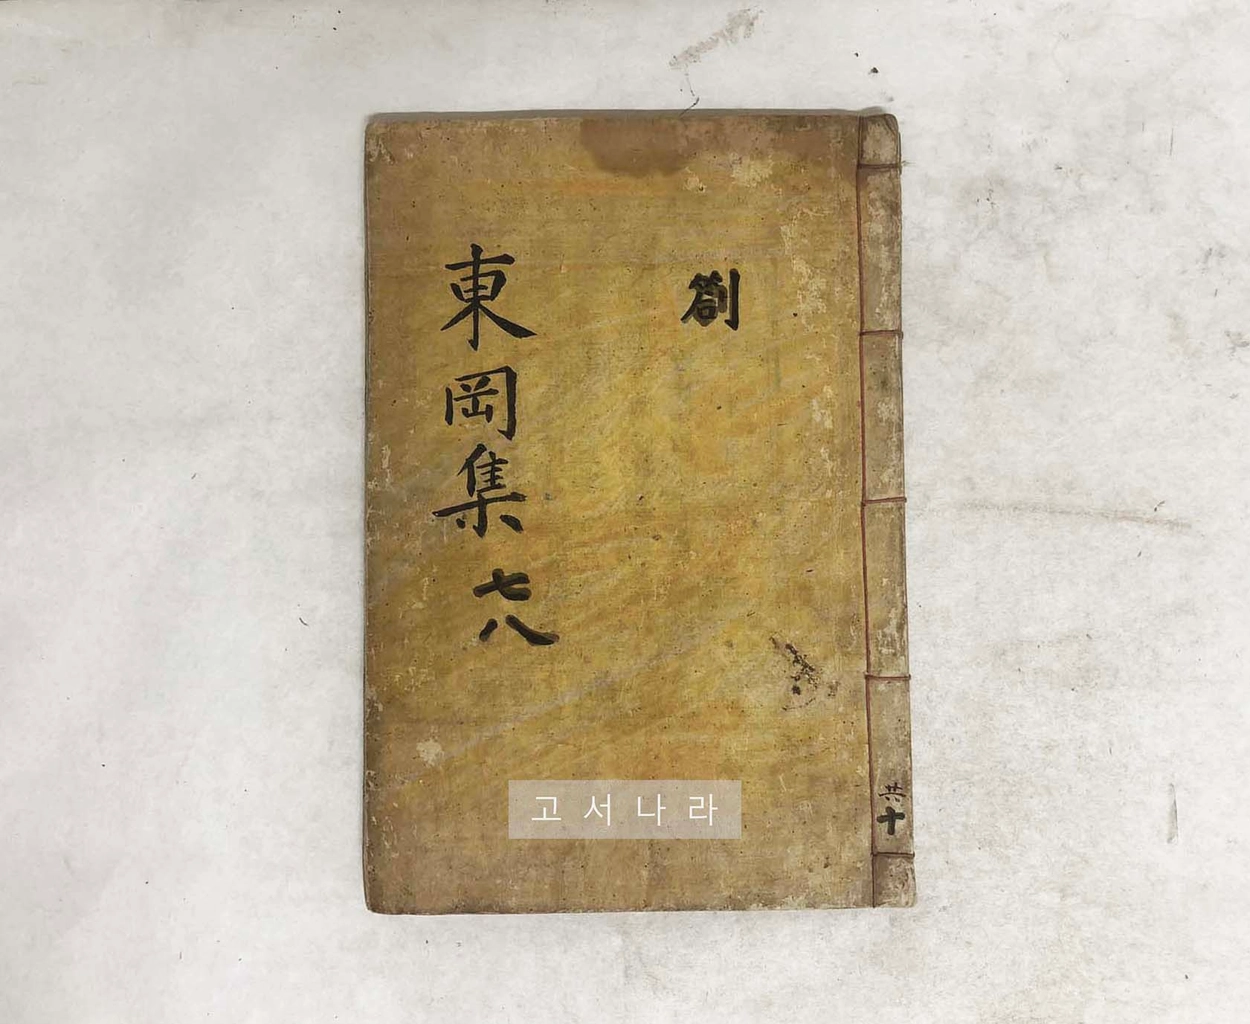 劄
東岡集 七八
共十
고서나라